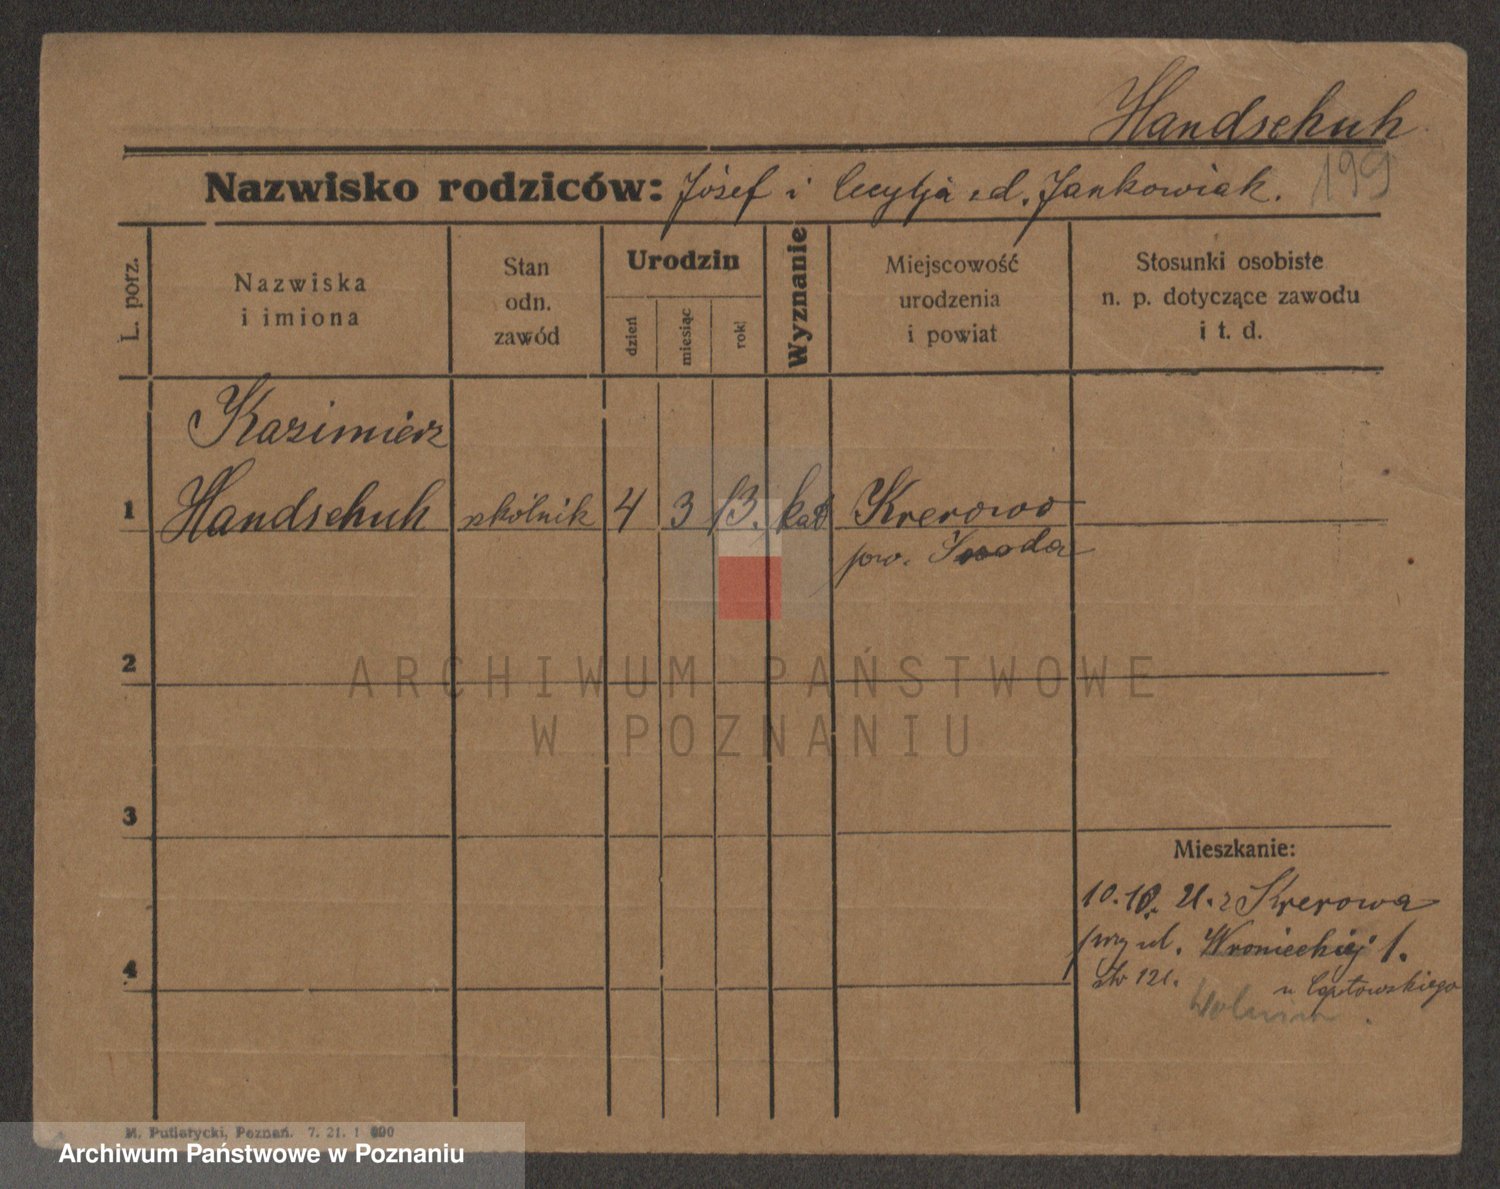 Handschuh
199
Nazwisko rodziców: Józef i Cecylja zd. Jankowiak.
L. porz.
Nazwiska
i imiona
Stan
odn.
zawód
Urodzin
dzień
miesiąc
rok
Wyznanie
Miejscowość
urodzenia
i powiat
Stosunki osobiste
n. p. dotyczące zawodu
i t. d.
Kazimierz
1 Handschuh szkólnik 4 3 13. kat Krerowo
pow. Środa
2
ARCHIWUM PAŃSTWOWE
W POZNANIU
3
Mieszkanie:
10.10. 21. z Krerowa
przy ul. Wronieckiej 1.
4
str 121.
u
M. Putiatycki, Poznań. 7. 21. 1
Archiwum Państwowe w Poznaniu